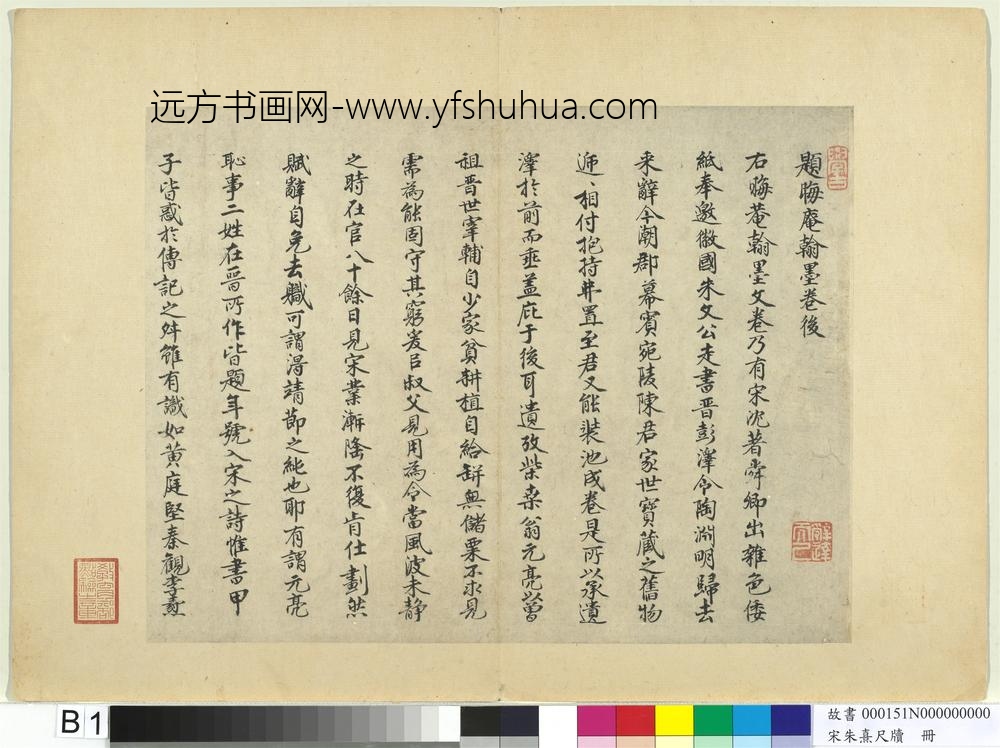 远方书画网-www.yfshuhua.com
題晦庵翰墨卷後
右晦菴翰墨文卷乃有宋沈著舜卿出雜色倭
紙奉邀徽國朱文公走書晉彭澤令陶淵明歸去
来辭今潮郡幕賓宛陵陳君家世寶藏之舊物
迺相付抱持再置至君又能裝池成卷是所以承遺
澤於前而垂盖庇于後可遺攷柴桑翁元亮以曾
祖晋世宰輔自少家貧耕植自給缾無儲粟不求見
需為能固守其窮爰以叔父見用為令當風波未靜
之時在官八十餘日見宋業漸隆不復肯仕劃然
賦辭自免去職可謂得靖節之純也耶有謂元亮
恥事二姓在晋所作皆題年號入宋之詩惟書甲
子皆惑於傳記之舛雖有識如黄庭堅秦觀李燾
B 1
故書 000151N000000000
宋朱熹尺牘 冊